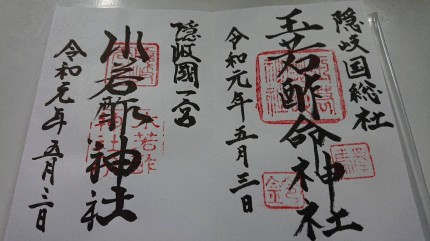 隠岐国総社
玉若酢命神社
令和元年五月三日
隠岐國一宮
水若酢神社
令和元年五月三日